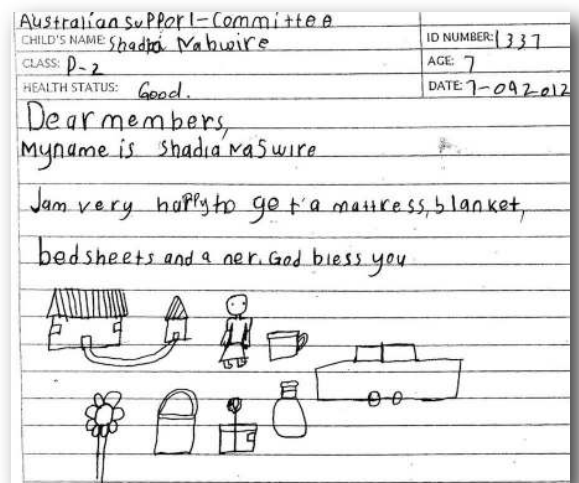 Australian Support-Committee
CHILD'S NAME: Shadia Nabwire
ID NUMBER: 1337
CLASS: P-2
AGE: 7
HEALTH STATUS: Good.
DATE: 7-092012
Dear members,
My name is Shadia Nabwire
Jam very happy to get a mattress, blanket,
bedsheets and a ner. God bless you